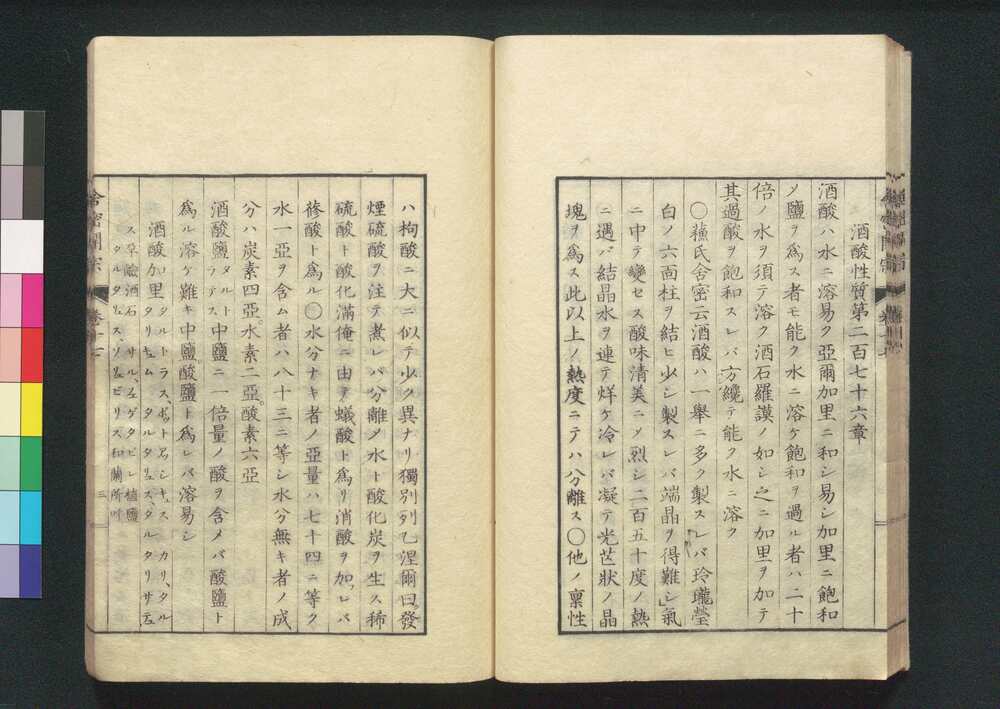 酒酸性質第二百七十六章
酒酸ハ水ニ溶易ク亞爾加里ニ和シ易シ加里ニ飽和
ノ鹽ヲ爲ス者モ能ク水ニ溶ケ飽和ヲ過ル者ハ二十
倍ノ水ヲ須テ溶ク酒石羅謨ノ如シ之ニ加里ヲ加テ
其過酸ヲ飽和スレバ方纔テ能ク水ニ溶ク
〇蘓氏舍密云酒酸ハ一舉ニ多ク製スレバ玲瓏瑩
白ノ六面柱ヲ結ヒ少シ製スレバ端晶ヲ得難シ氣
ニ中テ變セス酸味清美ニノ烈シ二百五十度ノ熱
ニ遇バ結晶水ヲ連テ烊ケ冷レバ凝テ光芒狀ノ晶
塊ヲ爲ス此以上ノ熱度ニテハ分離ス〇他ノ稟性
ハ拘酸ニ大ニ似テ少ク異ナリ獨別列乙涅爾曰發
煙硫酸ヲ注テ煮レバ分離ノ水ト酸化炭ヲ生ス稀
硫酸ト酸化滿俺ニ由テ蟻酸ト爲リ消酸ヲ加レバ
蓚酸ト爲ル〇水分ナキ者ノ亞量ハ七十四ニ等ク
水一亞ヲ含ム者ハ八十三ニ等シ水分無キ者ノ成
分ハ炭素四亞水素二亞酸素六亞
酒酸鹽タルトラテス中鹽ニ一倍量ノ酸ヲ含メバ酸鹽ト
爲ル溶ケ難キ中鹽酸鹽ト爲レバ溶易シ
酒酸加里
舍密開宗 卷十七
三